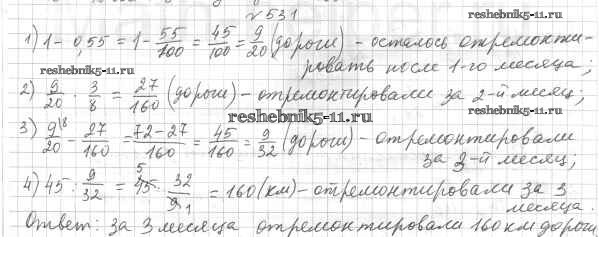 №531
reshebnik5-11.ru
1) 1 - 0,55 = 1 - 55/100 = 45/100 = 9/20 (дороги) - осталось отремонти-
reshebnik5-11.ru
ровать после 1-го месяца;
2) 9/20 · 3/8 = 27/160 (дороги) - отремонтировали за 2-й месяц;
reshebnik5-11.ru
3) 9/20 \8 - 27/160 = 72-27/160 = 45/160 = 9/32 (дороги) - отремонтировали
за 3-й месяц;
4) 45 : 9/32 = 45 5 · 32/9 1 = 160 (км) - отремонтировали за 3
месяца.
reshebnik5-11.ru
reshebnik5-11.ru
Ответ: за 3 месяца отремонтировали 160 км дороги